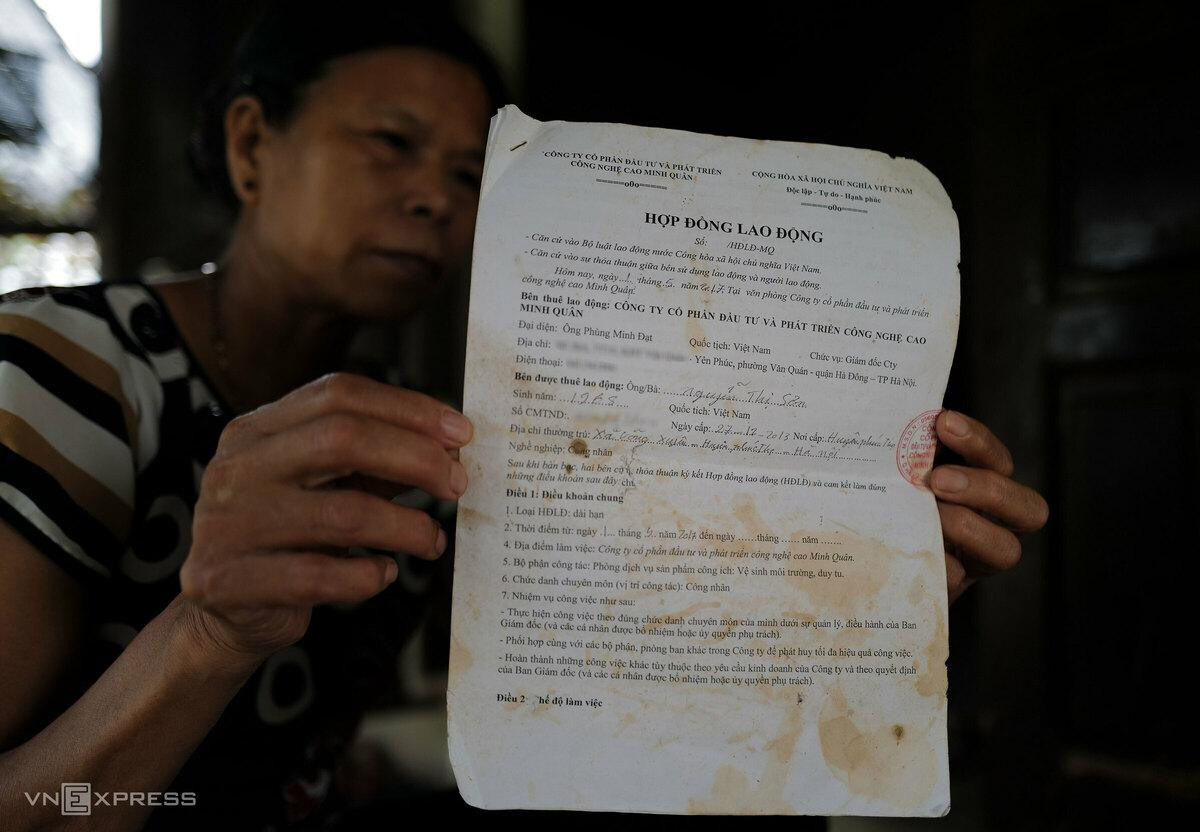 CÔNG TY CỔ PHẦN ĐẦU TƯ VÀ PHÁT TRIỂN
CÔNG NGHỆ CAO MINH QUÂN
=====o0o=====
CỘNG HÒA XÃ HỘI CHỦ NGHĨA VIỆT NAM
Độc lập - Tự do - Hạnh phúc
=====o0o=====
HỢP ĐỒNG LAO ĐỘNG
Số: /HĐLĐ-MQ
- Căn cứ vào Bộ luật lao động nước Cộng hòa xã hội chủ nghĩa Việt Nam.
- Căn cứ vào sự thỏa thuận giữa bên sử dụng lao động và người lao động.
Hôm nay, ngày 1 tháng 5 năm 2017. Tại văn phòng Công ty cổ phần đầu tư và phát triển
công nghệ cao Minh Quân.
Bên thuê lao động: CÔNG TY CỔ PHẦN ĐẦU TƯ VÀ PHÁT TRIỂN CÔNG NGHỆ CAO
MINH QUÂN
Đại diện: Ông Phùng Minh Đạt Quốc tịch: Việt Nam Chức vụ: Giám đốc Cty
Địa chỉ: - Yên Phúc, phường Văn Quán - quận Hà Đông – TP Hà Nội.
Điện thoại:
Bên được thuê lao động: Ông/Bà: Nguyễn Thị
Sinh năm: 1968 Quốc tịch: Việt Nam
Số CMTND: Ngày cấp: 27-12-2013 Nơi cấp: Huyện
Địa chỉ thường trú: Xã Xuyên - Huyện - Hà Nội
Nghề nghiệp: Công nhân
Sau khi bàn bạc, hai bên thỏa thuận ký kết Hợp đồng lao động (HĐLĐ) và cam kết làm đúng
những điều khoản sau đây:
Điều 1: Điều khoản chung
1. Loại HĐLĐ: dài hạn
2. Thời điểm từ: ngày 1 tháng 5 năm 2017 đến ngày ...... tháng ...... năm .......
4. Địa điểm làm việc: Công ty cổ phần đầu tư và phát triển công nghệ cao Minh Quân.
5. Bộ phận công tác: Phòng dịch vụ sản phẩm công ích: Vệ sinh môi trường, duy tu.
6. Chức danh chuyên môn (vị trí công tác): Công nhân
7. Nhiệm vụ công việc như sau:
- Thực hiện công việc theo đúng chức danh chuyên môn của mình dưới sự quản lý, điều hành của Ban
Giám đốc (và các cá nhân được bổ nhiệm hoặc ủy quyền phụ trách).
- Phối hợp cùng với các bộ phận, phòng ban khác trong Công ty để phát huy tối đa hiệu quả công việc.
- Hoàn thành những công việc khác tùy thuộc theo yêu cầu kinh doanh của Công ty và theo quyết định
của Ban Giám đốc (và các cá nhân được bổ nhiệm hoặc ủy quyền phụ trách).
Điều 2 hế độ làm việc
VNEXPRESS